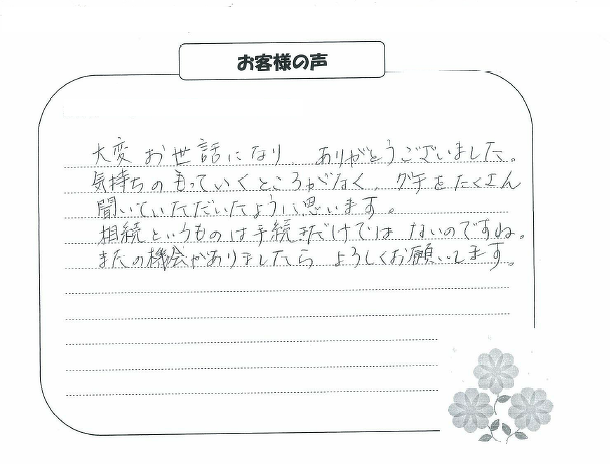 お客様の声
大変お世話になり ありがとうございました。
気持ちのもっていくところがなく、グチをたくさん
聞いていただいたように思います。
相続というものは手続きだけではないのですね。
またの機会がありましたら よろしくお願いします。